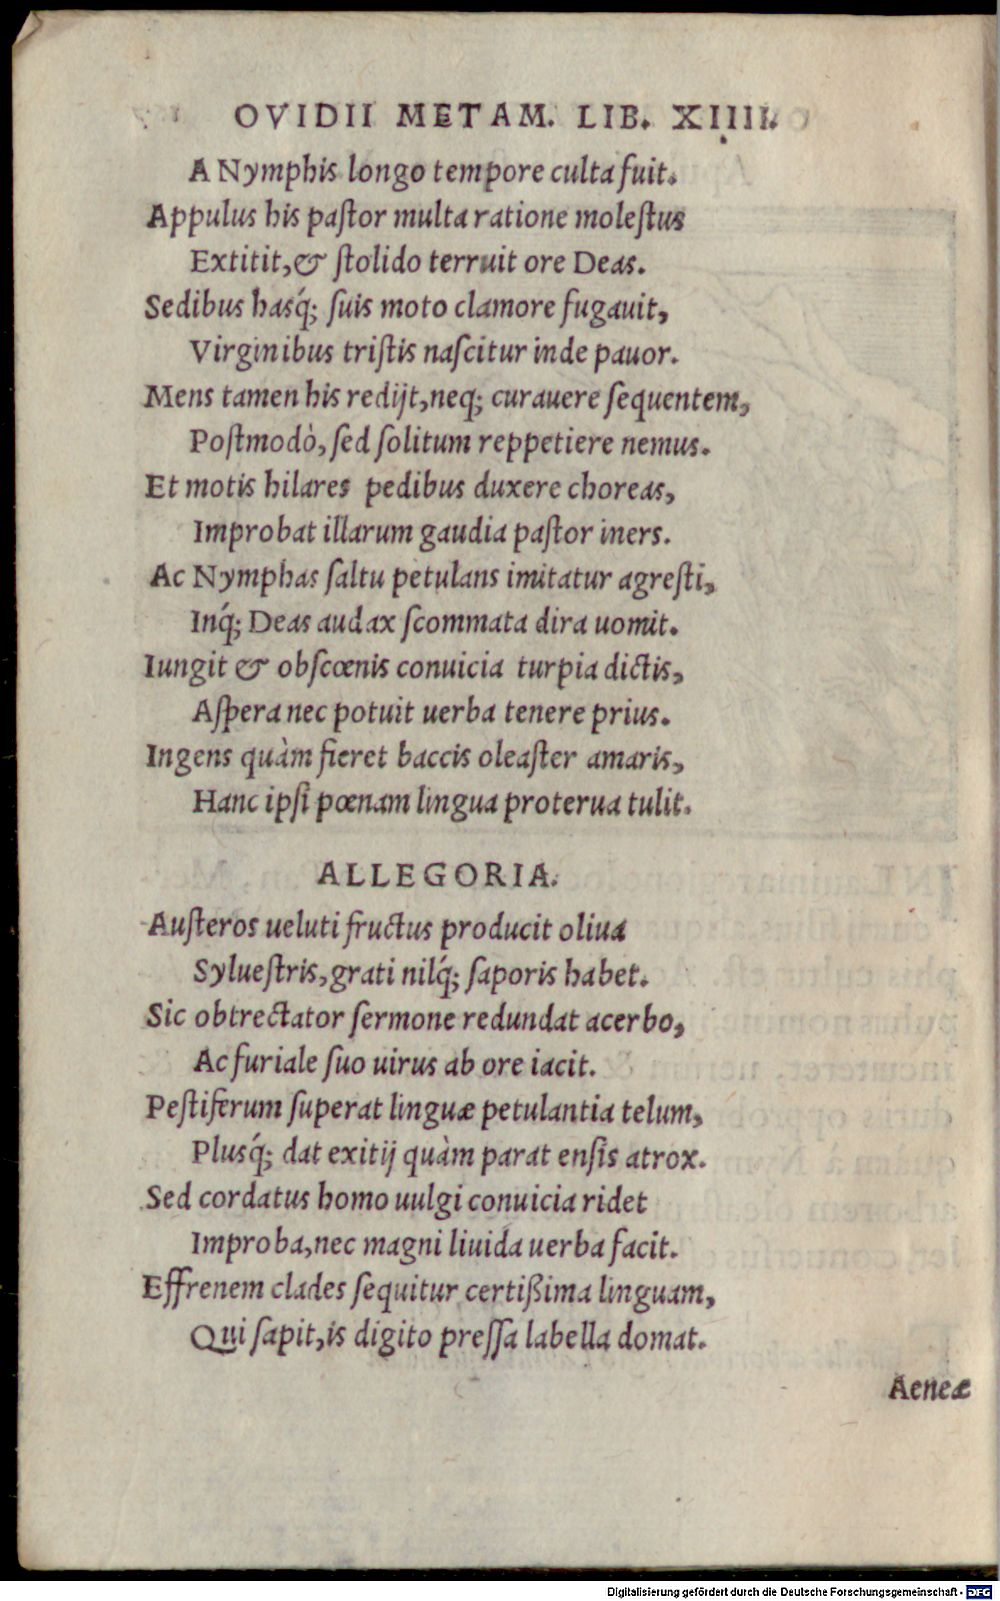 OVIDII METAM. LIB. XIIII.
A Nymphis longo tempore culta fuit.
Appulus his paſtor multa ratione moleſtus
Extitit,& ſtolido terruit ore Deas.
Sedibus hasq́; ſuis moto clamore fugauit,
Virginibus triſtis naſcitur inde pauor.
Mens tamen his redijt,neq; curauere ſequentem,
Poſtmodò, ſed ſolitum reppetiere nemus.
Et motis hilares pedibus duxere choreas,
Improbat illarum gaudia paſtor iners.
Ac Nymphas ſaltu petulans imitatur agreſti,
Inq́; Deas audax ſcommata dira uomit.
Iungit & obſcœnis conuicia turpia dictis,
Aſpera nec potuit uerba tenere prius.
Ingens quàm fieret baccis oleaſter amaris,
Hanc ipſi pœnam lingua proterua tulit.
ALLEGORIA.
Auſteros ueluti fructus producit oliua
Sylueſtris,grati nilq́; ſaporis habet.
Sic obtrectator ſermone redundat acerbo,
Ac furiale ſuo uirus ab ore iacit.
Peſtiferum ſuperat linguæ petulantia telum,
Plusq́; dat exitij quàm parat enſis atrox.
Sed cordatus homo uulgi conuicia ridet
Improba,nec magni liuida uerba facit.
Effrenem clades ſequitur certißima linguam,
Qui ſapit,is digito preſſa labella domat.
Aeneæ
Digitalisierung gefördert durch die Deutsche Forschungsgemeinschaft - DFG